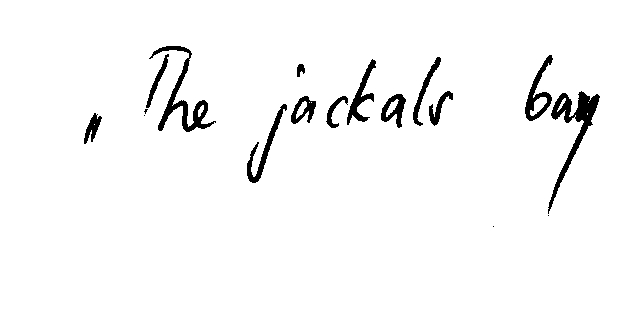 „The jackals bay